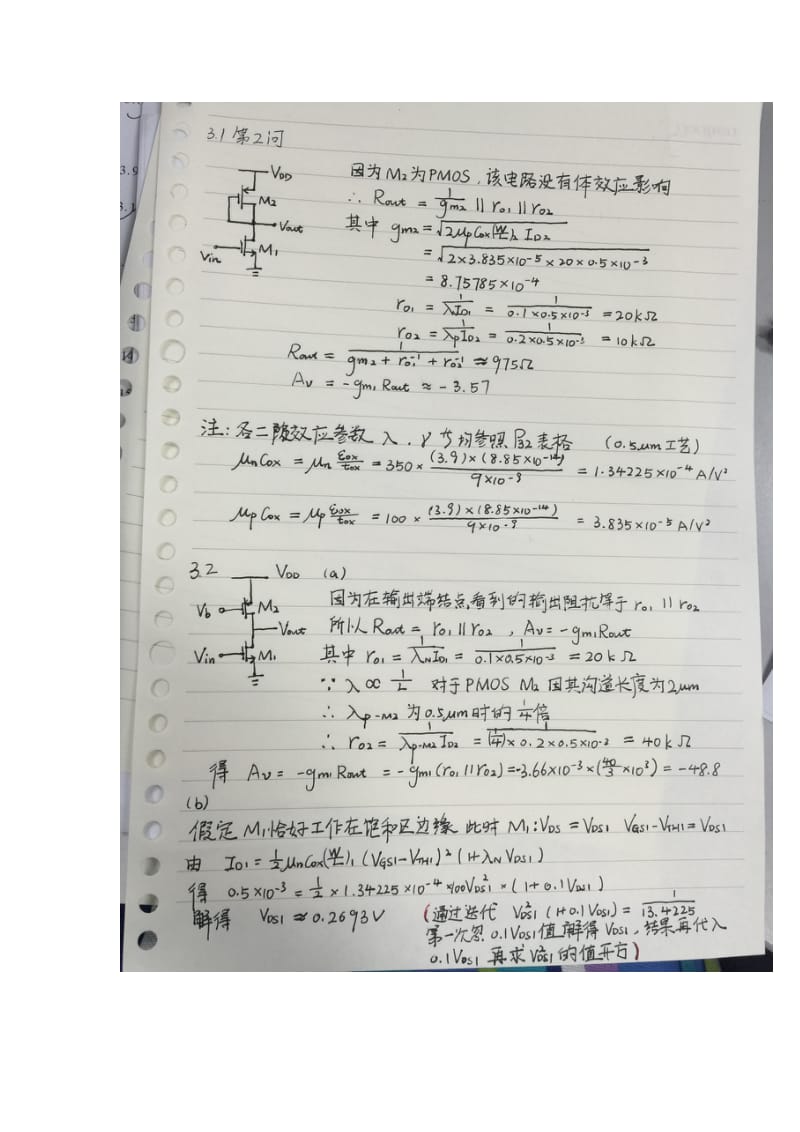 3.1 第2问
V_DD
M2
Vout
Vin
M1
因为M2为PMOS,该电路没有体效应影响
∴ Rout = 1/gm2 || ro1 || ro2
其中 gm2 = √(2μpCox(W/L)2 ID2)
= √(2×3.835×10⁻⁵×20×0.5×10⁻³)
= 8.75785×10⁻⁴
ro1 = 1/(λN ID1) = 1/(0.1×0.5×10⁻³) = 20kΩ
ro2 = 1/(λp ID2) = 1/(0.2×0.5×10⁻³) = 10kΩ
Rout = 1/(gm2 + ro1⁻¹ + ro2⁻¹) ≈ 975Ω
Av = -gm1 Rout ≈ -3.57
注:各二阶效应参数 λ、γ 均参照 表格 (0.5μm工艺)
μnCox = μn εox/tox = 350 × (3.9)×(8.85×10⁻¹⁴)/(9×10⁻⁹) = 1.34225×10⁻⁴ A/V²
μpCox = μp εox/tox = 100 × (3.9)×(8.85×10⁻¹⁴)/(9×10⁻⁹) = 3.835×10⁻⁵ A/V²
3.2
V_DD
Vb
M2
Vout
Vin
M1
(a)
因为在输出端结点看到的输出阻抗等于 ro1 || ro2
所以 Rout = ro1 || ro2 , Av = -gm1Rout
其中 ro1 = 1/(λN ID1) = 1/(0.1×0.5×10⁻³) = 20kΩ
∵ λ∝1/L 对于PMOS M2 因其沟道长度为2μm
∴ λp-M2 为0.5μm时的 1/4 倍
∴ ro2 = 1/(λp-M2 ID2) = 1/((1/4)×0.2×0.5×10⁻³) = 40kΩ
得 Av = -gm1 Rout = -gm1(ro1 || ro2) = -3.66×10⁻³×(40/3 ×10³) = -48.8
(b)
假定 M1恰好工作在饱和区边缘 此时 M1: VDS = VDS1 VGS1-VTH1 = VDS1
由 ID1 = ½ μnCox(W/L)1 (VGS1-VTH1)² (1+λN VDS1)
得 0.5×10⁻³ = ½ × 1.34225×10⁻⁴ × 100 VDS1² × (1+0.1VDS1)
解得 VDS1 ≈ 0.2693V (通过迭代 VDS1² (1+0.1VDS1) = 1/13.4225
第一次忽 0.1VDS1值,解得 VDS1, 结果再代入
0.1VDS1 再求 VDS1² 的值开方)